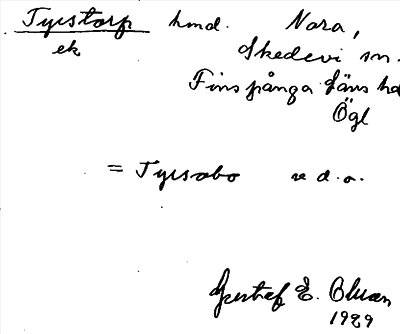 Tyrstorp hmd. Nora,
ek Skedevi sn.
Finspånga läns hd
Ögl
= Tyrsabo se d.o.
Gustaf E. Bluan
1929